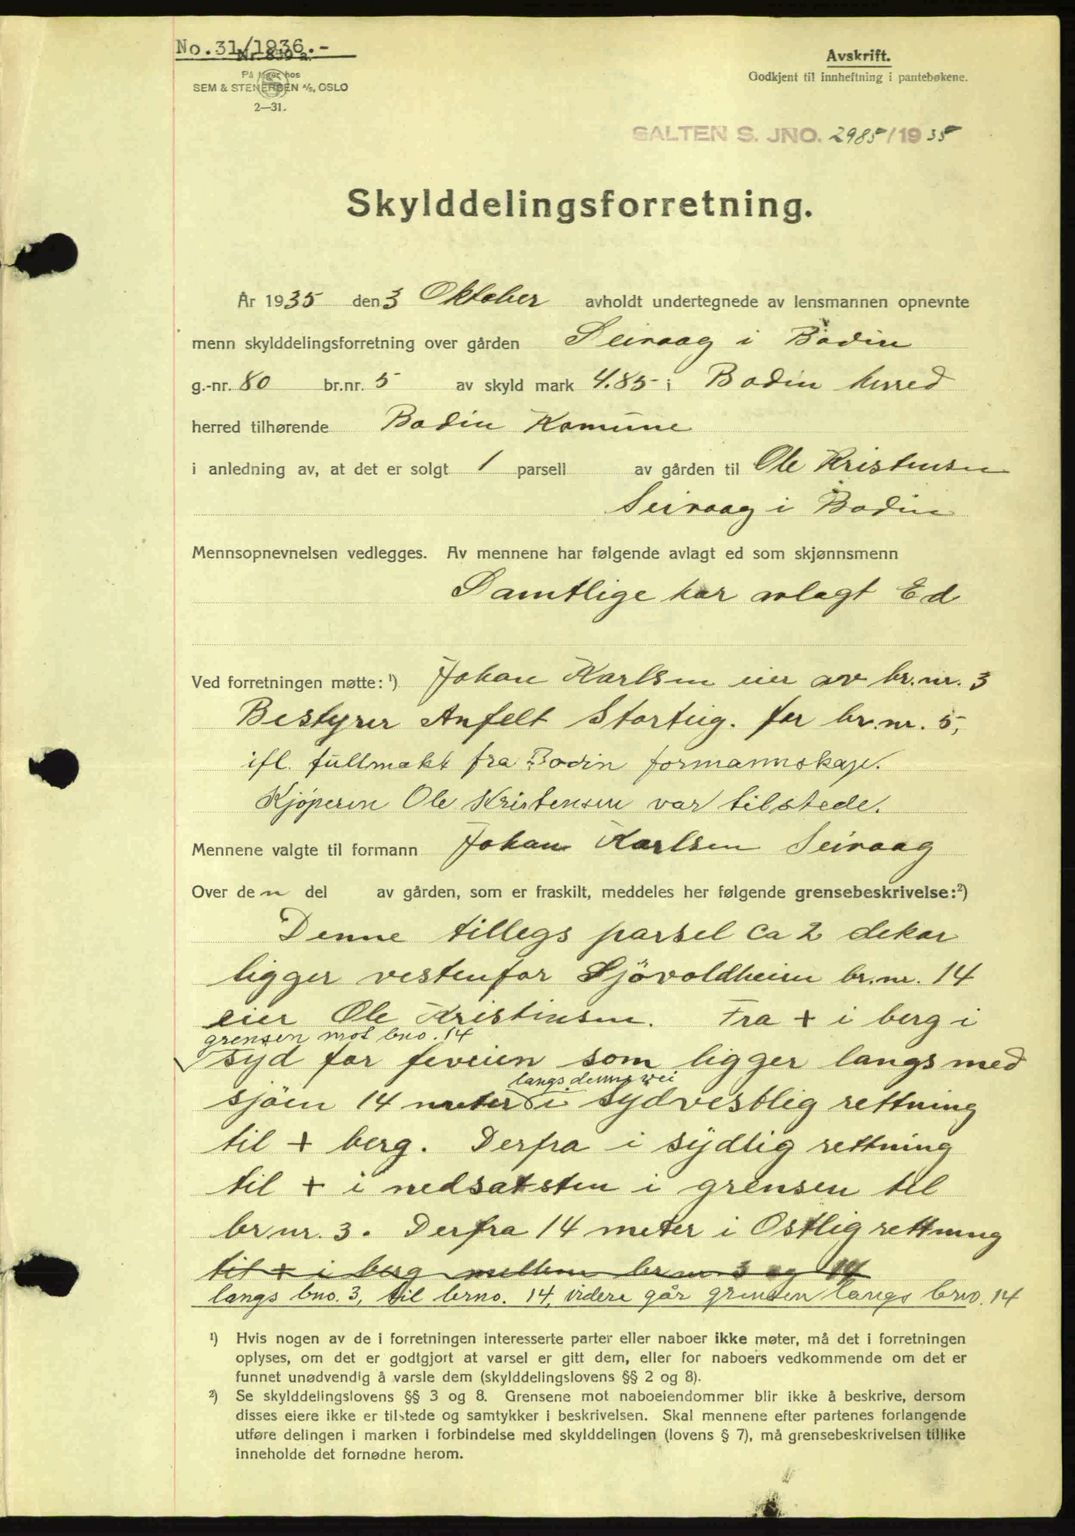 No. 31/1936.-
Nr. 839 a.
På lager hos
SEM & STENERSEN A/S, OSLO
2—31.
Avskrift.
Godkjent til innheftning i pantebøkene.
SALTEN S. JNO. 2985/1935
Skylddelingsforretning.
År 1935 den 3 Oktober avholdt undertegnede av lensmannen opnevnte
menn skylddelingsforretning over gården Seivaag i Bodin
g.-nr. 80 br.nr. 5 av skyld mark 4.85 i Bodin herred
herred tilhørende Bodin Komune
i anledning av, at det er solgt 1 parsell av gården til Ole Kristensen
Seivaag i Bodin
Mennsopnevnelsen vedlegges. Av mennene har følgende avlagt ed som skjønnsmenn
Samtlige har avlagt Ed
Ved forretningen møtte: ¹) Johan Karlsen eier av br.nr. 3
Bestyrer Anfelt Stortug. for br.nr. 5,
ifl. fullmakt fra Bodin formannskap.
Kjøperen Ole Kristensen var tilstede.
Mennene valgte til formann Johan Karlsen Seivaag
Over den del av gården, som er fraskilt, meddeles her følgende grensebeskrivelse: ²)
Denne tillegs parsel ca 2 dekar
ligger vestenfor Sjövoldheim br.nr. 14
eier Ole Kristensen. Fra + i berg i
grensen mot bno. 14
syd for feveien som ligger langs med
langs denne vei
sjöen 14 meter i sydvestlig rettning
til + berg. Derfra i sydlig rettning
til + i nedsatsten i grensen til
br nr. 3. Derfra 14 meter i Ostlig rettning
til + i berg mellem br nr 3 og 14
langs bno. 3, til brno. 14, videre går grensen langs brno. 14
¹) Hvis nogen av de i forretningen interesserte parter eller naboer ikke møter, må det i forretningen
oplyses, om det er godtgjort at varsel er gitt dem, eller for naboers vedkommende om det er
funnet unødvendig å varsle dem (skylddelingslovens §§ 2 og 8).
²) Se skylddelingslovens §§ 3 og 8. Grensene mot naboeiendommer blir ikke å beskrive, dersom
disses eiere ikke er tilstede og samtykker i beskrivelsen. Skal mennene efter partenes forlangende
utføre delingen i marken i forbindelse med skylddelingen (lovens § 7), må grensebeskrivelsen tillike
inneholde det fornødne herom.